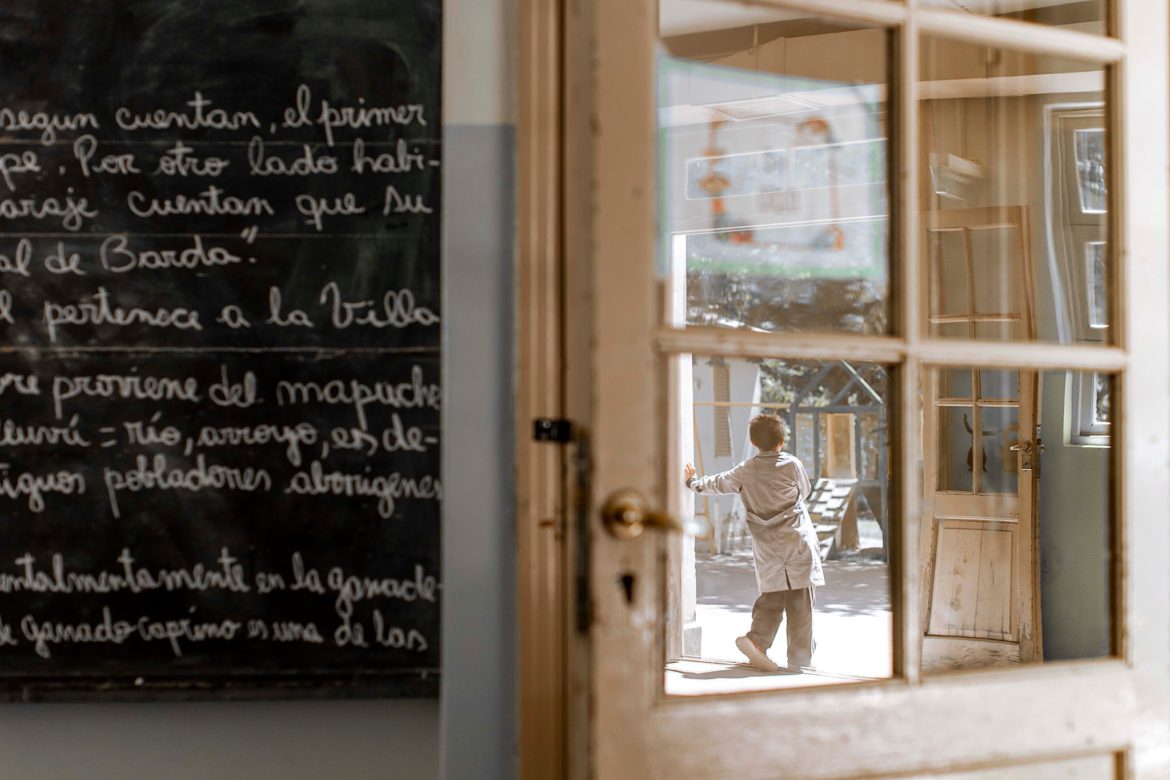 segun cuentan, el primer
pe. Por otro lado habi-
araje cuentan que su
al de Barda".
l pertenece a la Villa
re proviene del mapuche
leuvú = río, arroyo, es de-
tiguos pobladores aborigenes
entalmentamente en la ganade-
de ganado caprino es una de las